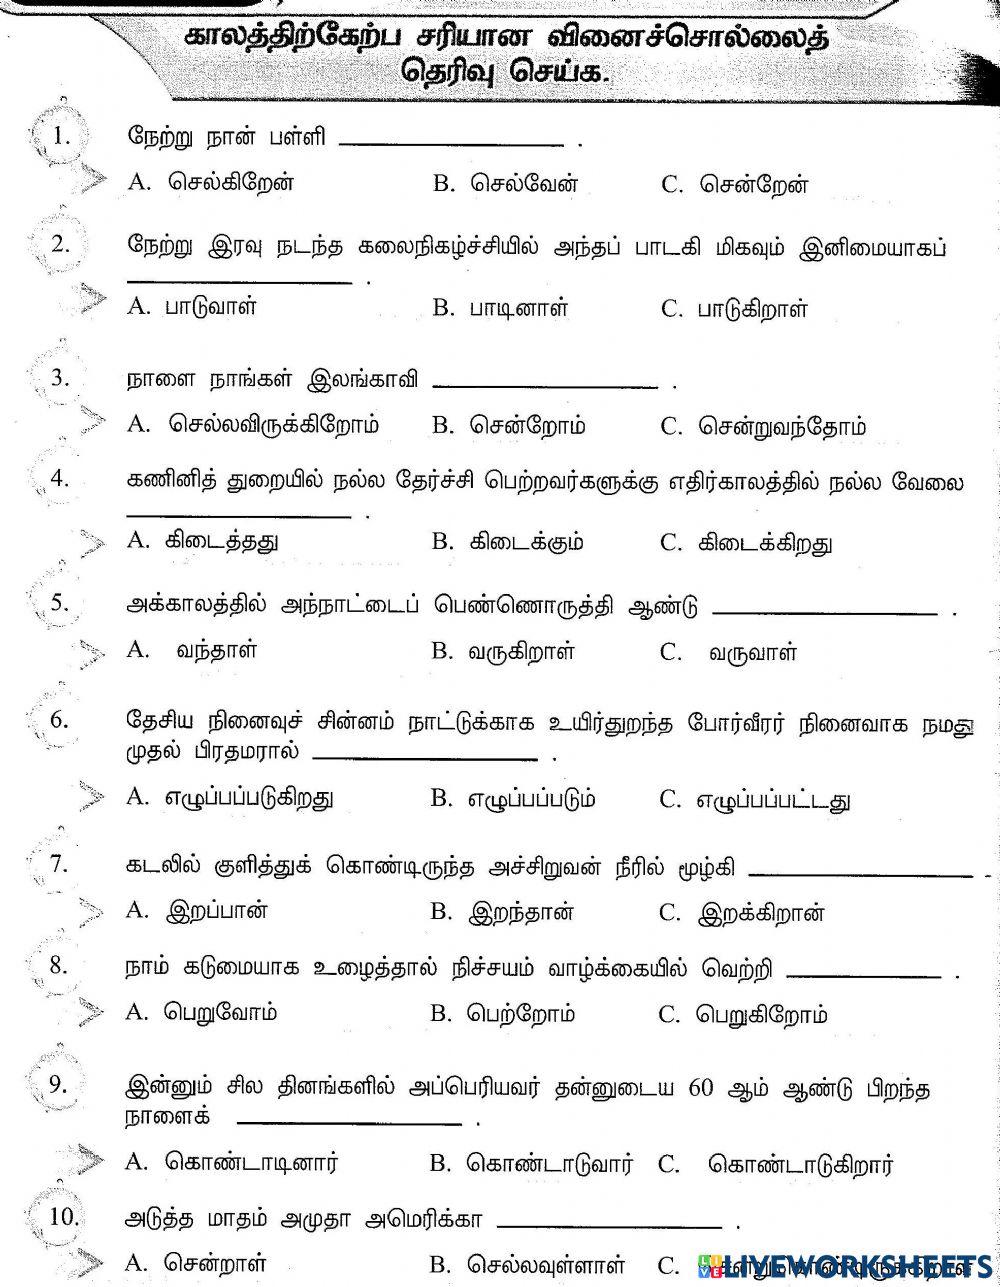 காலத்திற்கேற்ப சரியான வினைச்சொல்லைத்
தெரிவு செய்க.
1. நேற்று நான் பள்ளி ____________ .
A. செல்கிறேன் B. செல்வேன் C. சென்றேன்
2. நேற்று இரவு நடந்த கலைநிகழ்ச்சியில் அந்தப் பாடகி மிகவும் இனிமையாகப்
____________ .
A. பாடுவாள் B. பாடினாள் C. பாடுகிறாள்
3. நாளை நாங்கள் இலங்காவி ____________ .
A. செல்லவிருக்கிறோம் B. சென்றோம் C. சென்றுவந்தோம்
4. கணினித் துறையில் நல்ல தேர்ச்சி பெற்றவர்களுக்கு எதிர்காலத்தில் நல்ல வேலை
____________ .
A. கிடைத்தது B. கிடைக்கும் C. கிடைக்கிறது
5. அக்காலத்தில் அந்நாட்டைப் பெண்ணொருத்தி ஆண்டு ____________ .
A. வந்தாள் B. வருகிறாள் C. வருவாள்
6. தேசிய நினைவுச் சின்னம் நாட்டுக்காக உயிர்துறந்த போர்வீரர் நினைவாக நமது
முதல் பிரதமரால் ____________ .
A. எழுப்பப்படுகிறது B. எழுப்பப்படும் C. எழுப்பப்பட்டது
7. கடலில் குளித்துக் கொண்டிருந்த அச்சிறுவன் நீரில் மூழ்கி ____________ .
A. இறப்பான் B. இறந்தான் C. இறக்கிறான்
8. நாம் கடுமையாக உழைத்தால் நிச்சயம் வாழ்க்கையில் வெற்றி ____________ .
A. பெறுவோம் B. பெற்றோம் C. பெறுகிறோம்
9. இன்னும் சில தினங்களில் அப்பெரியவர் தன்னுடைய 60 ஆம் ஆண்டு பிறந்த
நாளைக் ____________ .
A. கொண்டாடினார் B. கொண்டாடுவார் C. கொண்டாடுகிறார்
10. அடுத்த மாதம் அமுதா அமெரிக்கா ____________ .
A. சென்றாள் B. செல்லவுள்ளாள் C.
LIVEWORKSHEETS